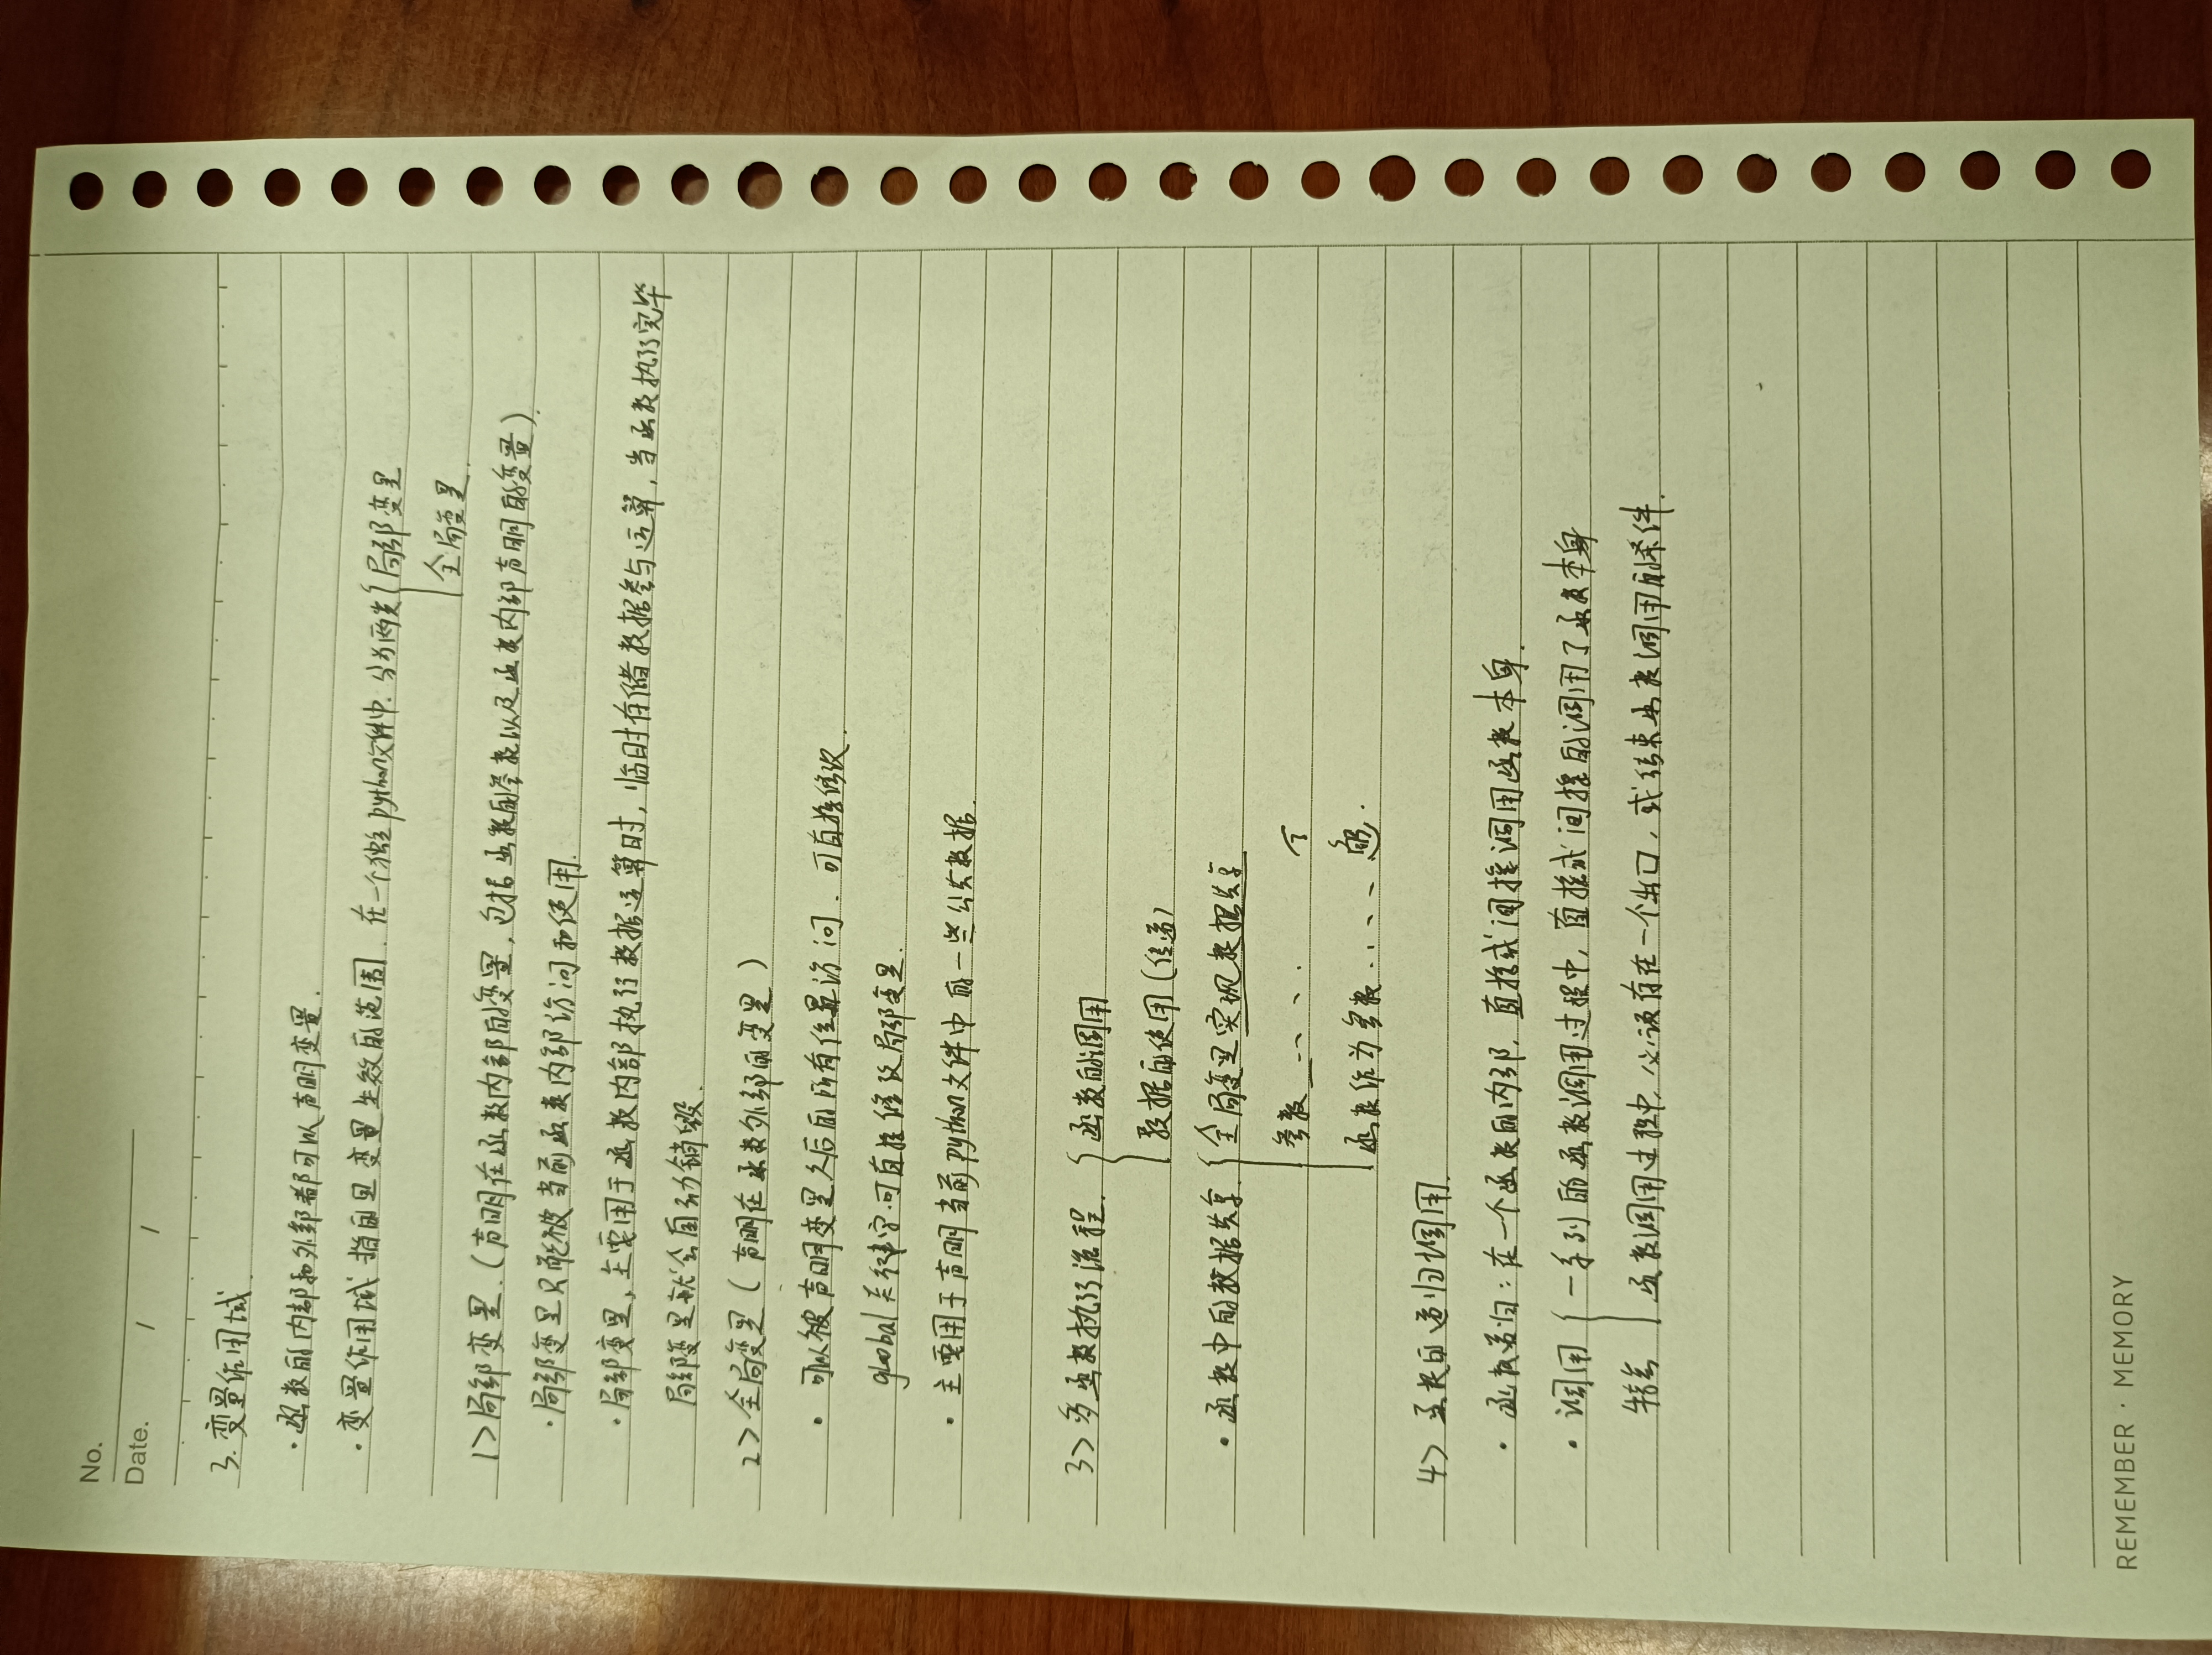 No.
Date. / /
3. 变量作用域.
· 函数的内部和外部都可以声明变量.
· 变量作用域指的是变量生效的范围. 在一个独立python文件中. 分为两类 { 局部变量
全局变量.
1> 局部变量. (声明在函数内部的变量, 包括函数的参数以及函数内部声明的变量).
· 局部变量只能被当前函数内部访问和使用.
· 局部变量, 主要用于函数内部执行数据运算时, 临时存储数据参与运算, 当函数执行完毕
局部变量就会自动销毁.
2> 全局变量 (声明在函数外部的变量)
· 可以被声明变量之后的所有位置访问. 可直接修改.
global 关键字.可直接修改局部变量.
· 主要用于声明当前python文件中的一些公共数据.
3> 多函数执行流程. { 函数的调用
数据的使用 (传递)
· 函数中的数据共享. { 全局变量实现数据共享
参数
函数作为参数
4> 函数的递归调用.
· 函数递归: 在一个函数的内部, 直接或间接调用函数本身.
· 调用 { 一系列的函数调用过程中, 直接或间接的调用了函数本身
特点 函数调用过程中, 必须存在一个出口, 或结束函数调用的条件.
REMEMBER · MEMORY